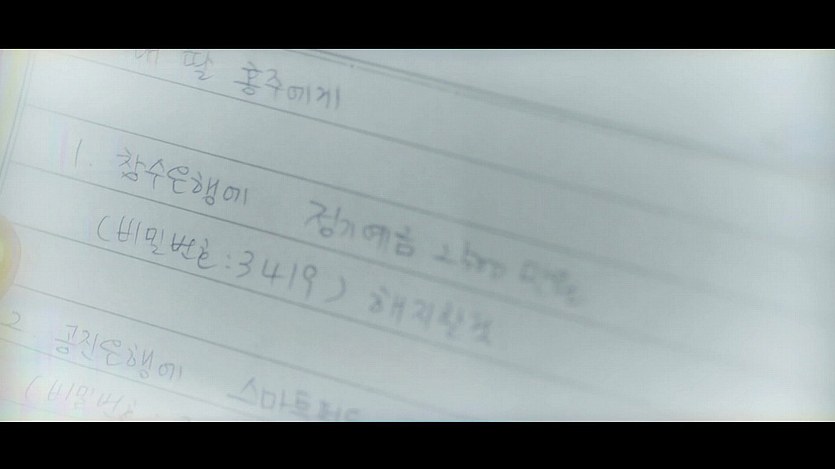 내 딸 홍주에게
1. 창수은행에 정기예금 2500만원
(비밀번호:3419) 해지할것
2 공진은행에 스마트
(비밀번호